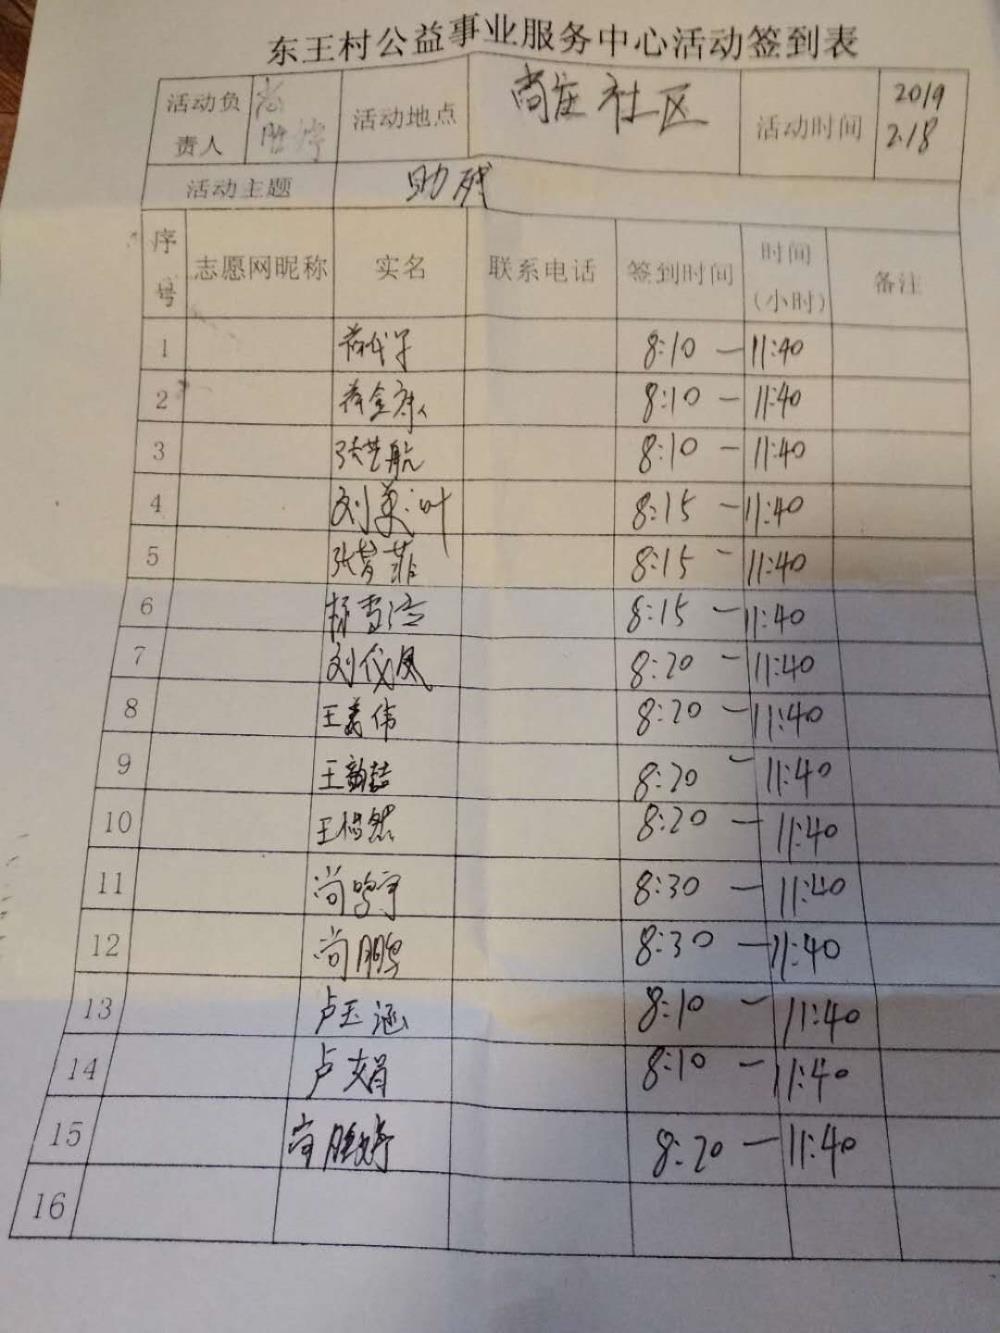 东王村公益事业服务中心活动签到表
活动负责人 尚 活动地点 尚庄社区 活动时间 2019 2.18
活动主题 助残
序号 志愿网昵称 实名 联系电话 签到时间 时间(小时) 备注
1 8:10 — 11:40
2 8:10 — 11:40
3 张艺航 8:10 — 11:40
4 刘美叶 8:15 — 11:40
5 8:15 — 11:40
6 杨雪洁 8:15 — 11:40
7 刘仪凤 8:20 — 11:40
8 8:20 — 11:40
9 8:20 — 11:40
10 8:20 — 11:40
11 尚鸣宇 8:30 — 11:40
12 尚鹏 8:30 — 11:40
13 卢玉涵 8:10 — 11:40
14 8:10 — 11:40
15 8:20 — 11:40
16